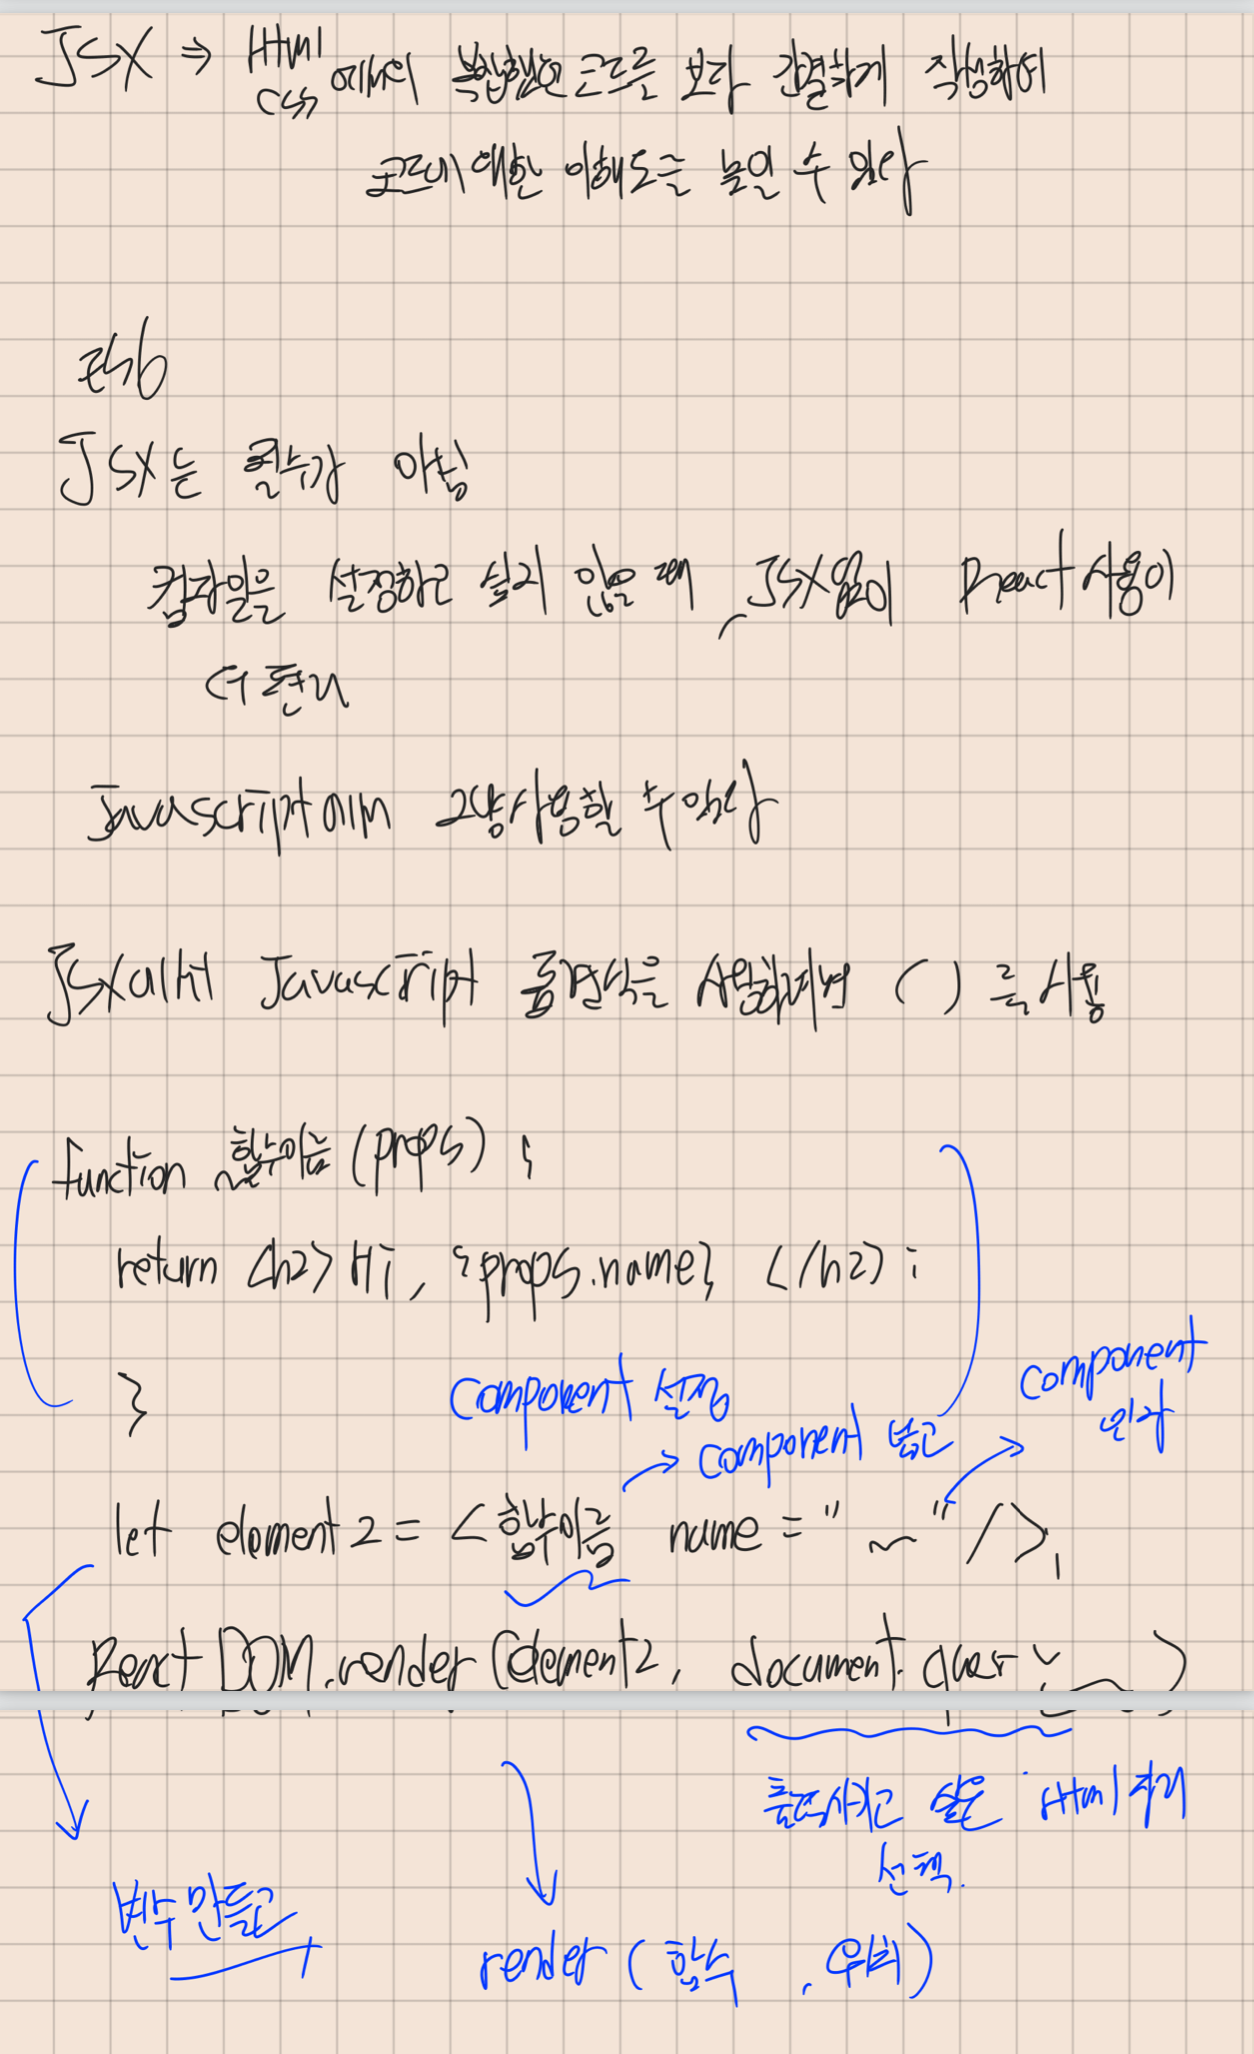 JSX ⇒ Html css 에서의 복잡했던 코드를 보다 간결하게 작성하여
코드에 대한 이해도를 높일 수 있다
ES6
JSX는 필수가 아님
컴파일을 설정하고 싶지 않을 때, JSX없이 React사용이
더 편리
Javascript에서 그냥사용할 수 있다
JSX에서 Javascript 표현식을 사용하려면 ( ) 를 사용
function 함수이름 (props) {
return <h2> Hi, {props.name} </h2> ;
}
Component 설정
Component
인자
→ Component 넣고
let element2 = <함수이름 name = "~" />;
React DOM.render (element2, document.quer
출력시키고 싶은 Html 위치
선택.
변수 만들고
render ( 함수 , 위치)